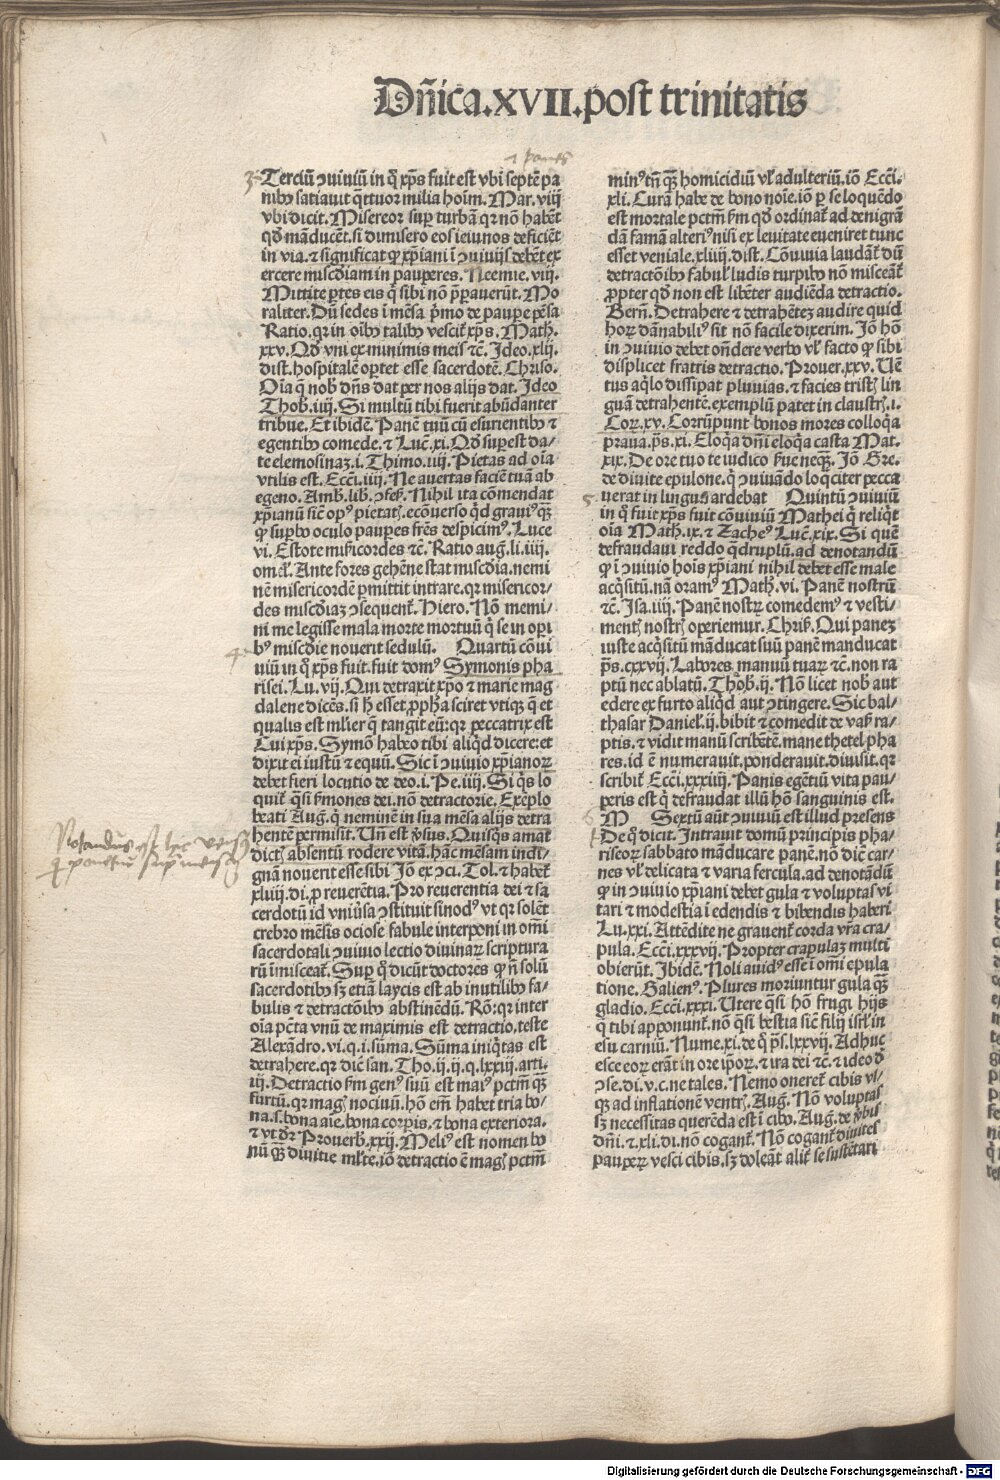 Dñica.XVII.post trinitatis
Terciũ ↄuiuiũ in q̃ xp̃s fuit est vbi septẽ pa
nibꝰ satiauit q̃ttuor milia hoĩm. Mar. viij
vbi dicit. Misereor suꝑ turbã qꝛ nõ habẽt
qđ mãducẽt. si dimisero eos ieiunos deficiẽt
in via. ⁊ significat ꝙ xp̃iani ĩ ↄuiuijs debẽt ex
ercere miẜcđiam in pauperes. Neemie. viij.
Mittite ꝑtes eis q̃ sibi nõ p̃pauerũt. Mo
raliter. Dũ sedes ĩ mẽsa p̃mo de paupe pẽsa
Ratio. qꝛ in oĩbꝰ talibꝰ vescit̃ xp̃s. Math.
xxv. Qđ vni ex minimis meis ⁊č. Jdeo. xlij.
dist. hospitalẽ oꝑtet esse sacerdotẽ. Chriso.
Oĩa q̃ nob̃ dñs dat per nos alijs dat. Jdeo
Thob. iiij. Si multũ tibi fuerit abũdanter
tribue. Et ibidẽ. Panẽ tuũ cũ esurientibꝰ ⁊
egentibꝰ comede. ⁊ Luč. xi. Qđ suꝑest da-
te elemosinaʒ. i. Thimo. iiij. Pietas ad oĩa
vtilis est. Ecči. iiij. Ne auertas faciẽ tuã ab
egeno. Amb. lib. ↄfeẜ. Nihil ita cõmendat
xp̃ianũ sič opꝰ pietatꝭ. ecõuerso q̃d grauiꝰ q̃ꝫ
ꝙ suꝑbo oculo pauꝑes fr̃es despicimꝰ. Luce
vi. Estote mĩficordes ⁊č. Ratio aug. li. iiij.
omeľ. Ante fores gehẽne stat miẜcđia. nemi
nẽ misericordẽ ꝑmittit intrare. qꝛ misericor-
des miẜcđiaʒ ↄsequent̃. Hiero. Nõ memi-
ni me legisse mala morte mortuũ q̃ se in oꝑi
bꝰ miẜcđie nouerit sedulũ. Quartũ cõui
uiũ in q̃ xp̃s fuit. fuit domꝰ Symonis pha
risei. Lu. vij. Qui detraxit xp̃o ⁊ marie mag
dalene dicẽs. si h̃ esset ꝓpha sciret vtiqꝫ q̃ et
qualis est mľier q̃ tangit eũ: qꝛ peccatrix est
Cui xp̃s. Symõ habeo tibi aliq̃d dicere: et
dixit ei iustũ ⁊ equũ. Sic ĩ ↄuiuio xp̃ianoꝝ
debet fieri locutio de deo. i. Pe. iiij. Si q̃s lo
quit̃ q̃si ẜmones dei. nõ detractorie. Exẽplo
beati Aug. q̃ neminẽ in sua mẽsa alijs detra
hentẽ permisit. Uñ est ṽsus. Quisq̃s amat
dictꝭ absentũ rodere vitã. hãc mẽsam indi-
gnã nouerit esse sibi Jõ ex ↄci. Tol. ⁊ habet̃
xliiij. di. ꝓ reuerẽtia. Pro reuerentia dei ⁊ sa
cerdotũ id vniũsa ↄstituit sinodꝰ vt qꝛ solẽt
crebro mẽsis ociose fabule interponi in omĩ
sacerdotali ↄuiuio lectio diuinaꝝ scriptura
rũ ĩmisceat̃. Suꝑ q̃ dicũt doctores ꝙ ñ solũ
sacerdotibꝰ sʒ etiã laycis est ab inutilibꝰ fa-
bulis ⁊ detractõibꝰ abstinẽdũ. Rõ: qꝛ inter
oĩa pčta vnũ de maximis est detractio. teste
Alexãdro. vi. q. i. sũma. Sũma iniq̃tas est
detrahere. qꝛ dič san. Tho. ij. ij. q. lxxiij. arti.
iij. Detractio ẜm genꝰ suũ est maiꝰ pctm̃ q̃ꝫ
furtũ. qꝛ magꝭ nociuũ. hõ em̃ habet tria bo-
na. s. bona aĩe. bona corꝑis. ⁊ bona exteriora.
⁊ vt đr Prouerb. xxij. Meliꝰ est nomen bo
nũ q̃ꝫ diuitie mľte. iõ detractio ẽ magꝭ pctm̃
minꝰ tñ q̃ꝫ homicidiũ vľ adulteriũ. iõ Ecči.
xli. Curã habe de bono noĩe. iõ ꝑ se loquẽdo
est mortale pctm̃ ẜm qđ ordinat̃ ad denigrã
dã famã alteriꝰ nisi ex leuitate eueniret tunc
esset veniale. xliiij. dist. Cõuiuia laudãt̃ dũ
detractõibꝰ fabul̃ ludis turpibꝰ nõ misceãt̃
ꝓpter qđ non est libẽter audiẽda detractio.
Berñ. Detrahere ⁊ detrahẽteʒ audire quid
hoꝝ dãnabiliꝰ sit nõ facile dixerim. Jõ hõ
in ↄuiuio debet oñdere verbo vľ facto ꝙ sibi
displicet fratris detractio. Prouer. xxv. Uẽ
tus aq̃lo dissipat pluuias. ⁊ facies tristꝭ lin
guã detrahentẽ. exemplũ patet in claustrꝭ. i.
Coꝝ. xv. Corrũpunt bonos mores colloq̃a
praua. p̃s. xi. Eloq̃a dñi eloq̃a casta Mat.
xix. De ore tuo te iudico ẜue neq̃ꝫ. Jõ Gre.
de diuite epulone. q̃ ↄuiuãdo loq̃citer pecca
uerat in lingua ardebat Quintũ ↄuiuiũ
in q̃ fuit xp̃s fuit cõuiuiũ Mathei q̃ reliq̃t
oĩa Math. ix. ⁊ Zacheꝰ Luč. xix. Si quẽ
defraudaui reddo q̃druplũ. ad denotandũ
ꝙ ĩ ↄuiuio hoĩs xp̃iani nihil debet esse male
acq̃sitũ. nã oramꝰ Math. vi. Panẽ nostrũ
⁊č. Jsa. iiij. Panẽ nostꝝ comedemꝰ ⁊ vesti-
mentꝭ nostrꝭ operiemur. Chriẜ. Qui paneʒ
iuste acq̃sitũ mãducat suũ panẽ manducat
p̃s. cxxvij. Labores manuũ tuaꝝ ⁊č. non ra
ptũ nec ablatũ. Thob. ij. Nõ licet nob̃ aut
edere ex furto aliq̃d aut ↄtingere. Sic bal-
thasar Daniel. ij. bibit ⁊ comedit de vaẜ ra-
ptis. ⁊ vidit manũ scribẽtẽ. mane thetel pha
res. id ẽ numerauit. ponderauit. diuisit. qꝛ
scribit̃ Ecči. xxxiiij. Panis egẽtiũ vita pau-
peris est q̃ defraudat illũ hõ sanguinis est.
M Sextũ aũt ↄuiuiũ est illud presens
De q̃ dicit. Intrauit domũ principis pha-
riseoꝝ sabbato mãducare panẽ. nõ dič car-
nes vľ delicata ⁊ varia fercula. ad denotãdũ
ꝙ in ↄuiuio xp̃iani debet gula ⁊ voluptas vi
tari ⁊ modestia ĩ edendis ⁊ bibendis haberi
Lu. xxi. Attẽdite ne grauent̃ corda vr̃a cra-
pula. Ecči. xxxvij. Propter crapulaʒ multi
obierũt. Jbidẽ. Noli auidꝰ esse ĩ omĩ epula
tione. Galienꝰ. Plures moriuntur gula q̃ꝫ
gladio. Ecči. xxxi. Utere q̃si hõ frugi hijs
q̃ tibi apponunt̃. nõ q̃si bestia sič filij isrľ in
esu carniũ. Nume. xi. de q̃ p̃s. lxxvij. Adhuc
esce eoꝝ erãt in ore ip̃oꝝ. ⁊ ira dei ⁊č. ⁊ ideo đ
ↄse. di. v. c. ne tales. Nemo oneret̃ cibis vl-
q̃ꝫ ad inflationẽ ventrꝭ. Aug. Nõ voluptas
sʒ necessitas querẽda est ĩ cibo. Aug. de ṽbis
dñi. ⁊ xli. di. nõ cogant̃. Nõ cogant̃ diuites
pauperꝝ vesci cibis. sʒ doleãt alit̃ se sustẽtari
Digitalisierung gefördert durch die Deutsche Forschungsgemeinschaft - DFG